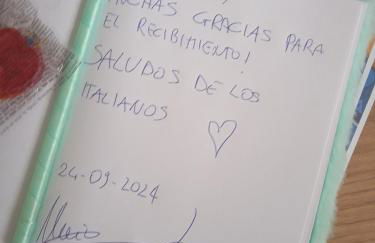 MUCHAS GRACIAS PARA
EL RECIBIMIENTO!
SALUDOS DE LOS
ITALIANOS
24-09-2024